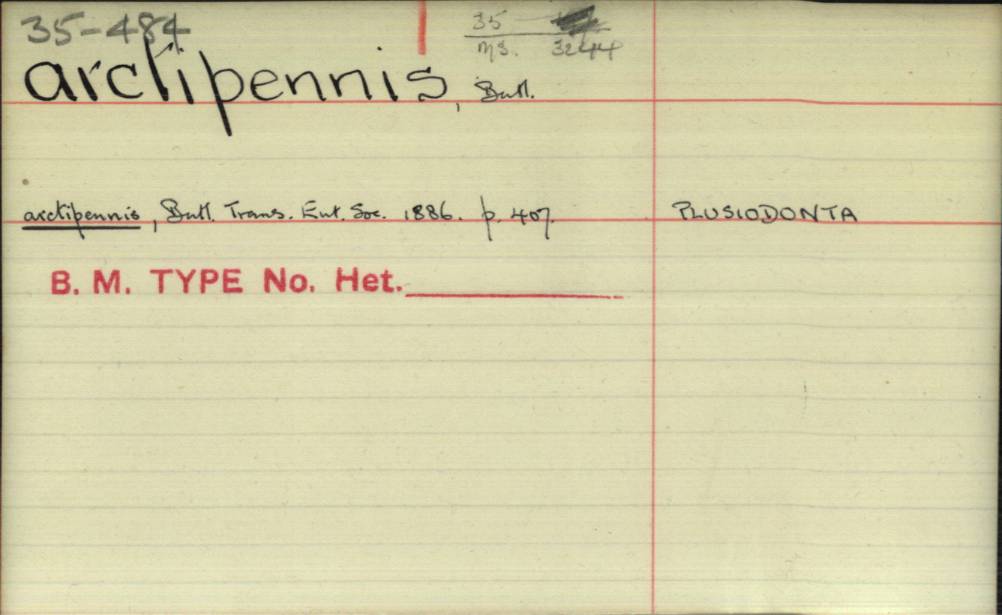 35-484
35
MS. 3244
arctipennis, Butl.
arctipennis, Butl. Trans. Ent. Soc. 1886. p. 407. PLUSIODONTA
B. M. TYPE No. Het.